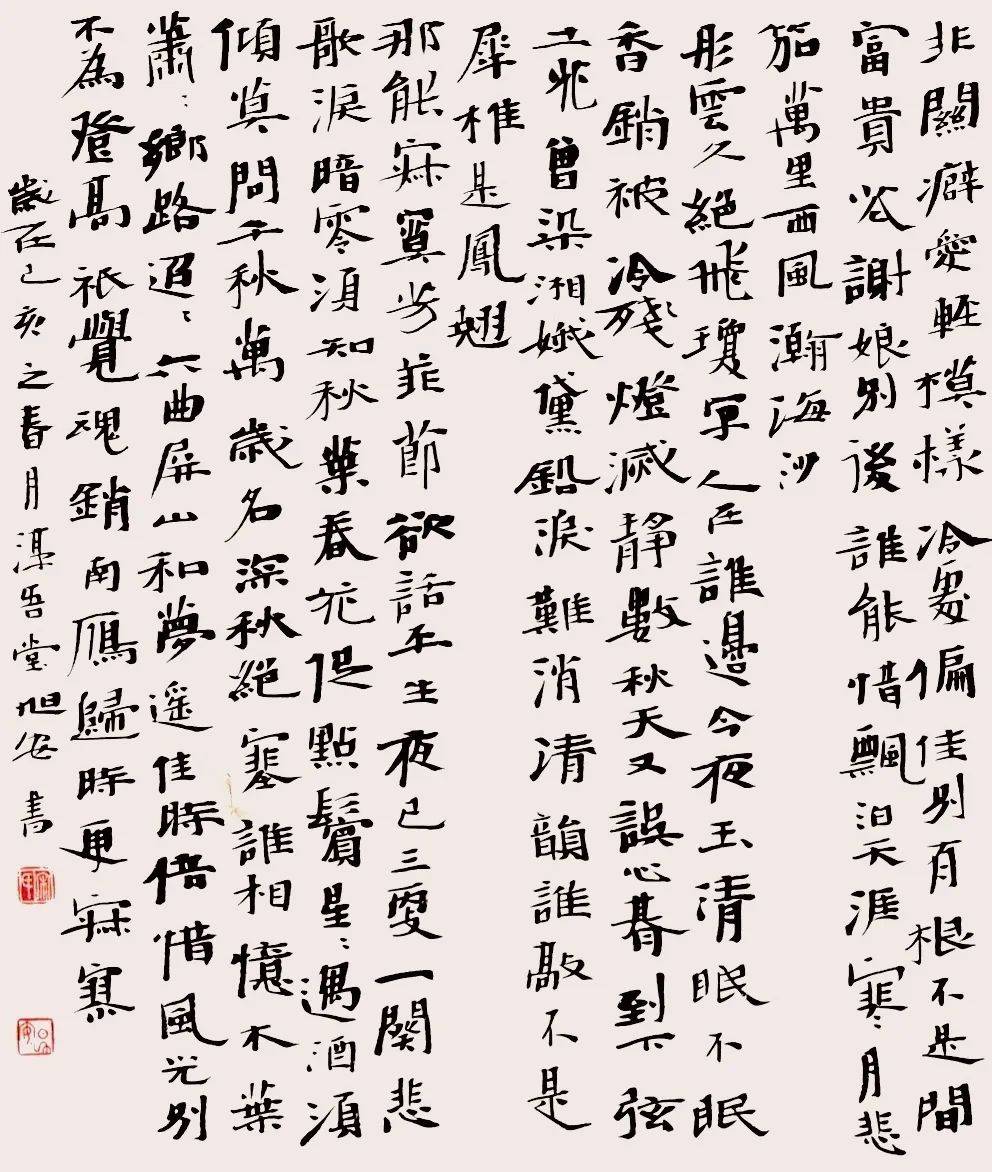 非關癖愛輕模樣冷處偏佳別有根不是間
富貴花謝娘別後誰能惜飄泊天涯寒月悲
笳萬里西風瀚海沙
彤雲久絕飛瓊字人在誰邊今夜玉清眠不眠
香銷被冷殘燈滅靜數秋天又誤心朞到下弦
土花曾染湘娥黛鉛淚難消清韻誰敲不是
犀椎是鳳翹
那能寂寞芳菲節欲話平生夜已三更一闋悲
歌淚暗零須知秋葉春花促點鬢星〻遇酒須
傾莫問千秋萬歲名深秋絕塞誰相憶木葉
蕭〻鄉路迢〻六曲屏山和夢遙佳時倍惜風光別
不為登高祇覺魂銷南雁歸時更寂寥
歲在己亥之春月吾堂旭安書